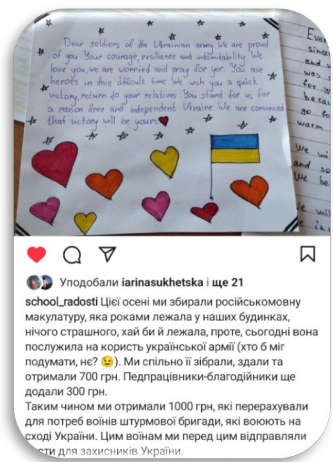 Dear soldiers of the Ukrainian army we are proud
of you. Your courage, resilience and indomitability. We
love you, we are worried and pray for yor. You are
heroes in this dificult time. We wish you a quick
victory, return to your relatives. You stand for us, for
a reason free and independent Ukraine. We are convinced
that victory will be yours
Уподобали iarinasukhetska і ще 21
school_radosti Цієї осені ми збирали російськомовну
макулатуру, яка роками лежала у наших будинках,
нічого страшного, хай би й лежала, проте, сьогодні вона
послужила на користь української армії (хто б міг
подумати, нє? 😉). Ми спільно її зібрали, здали та
отримали 700 грн. Педпрацівники-благодійники ще
додали 300 грн.
Таким чином ми отримали 1000 грн, які перерахували
для потреб воїнів штурмової бригади, які воюють на
сході України. Цим воїнам ми перед цим відправляли
для захисників України.